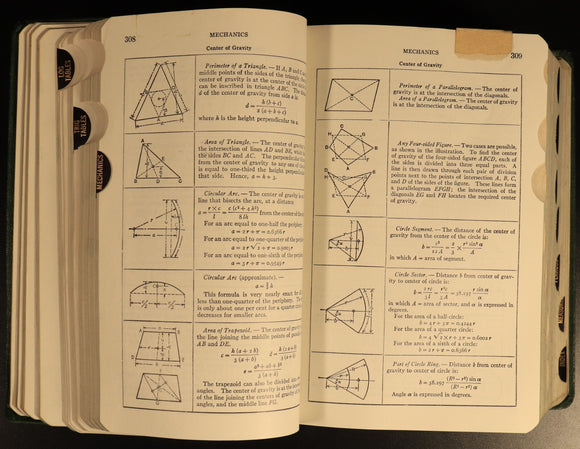 LOG
TABLES
TRIG
TABLES
MECHANICS
308 MECHANICS
Center of Gravity
Perimeter of a Triangle. — If A, B and
middle points of the sides of the triangle,
center of gravity is at the center of the
can be inscribed in triangle ABC. The
d of the center of gravity from side a is:
d = h (b + c) / 2 (a + b + c)
where h is the height perpendicular to a.
Area of Triangle. — The center of gravity
the intersection of lines AD and BE, which
the sides BC and AC. The perpendicular
from the center of gravity to any one of
is equal to one-third the height perpendicular
that side. Hence, a = h ÷ 3.
Circular Arc. — The center of gravity is on
line that bisects the arc, at a distance
a = r × c / l = c (c² + 4 h²) / 8 l h from the center of the
For an arc equal to one-half the periphery
a = 2 r ÷ π = 0.6366 r
For an arc equal to one-quarter of the periphery
a = 2 r √2 ÷ π = 0.9003 r
For an arc equal to one-sixth of the periphery
a = 3 r ÷ π = 0.9549 r
Circular Arc (approximate). —
a = ⅔ h
This formula is very nearly exact for
less than one-quarter of the periphery. The
is only about one per cent for a quarter
decreases for smaller arcs.
Area of Trapezoid. — The center of gravity
the line joining the middle points of
AB and DE.
c = h (a + 2 b) / 3 (a + b) d =
e = a² + ab + b² / 3 (a + b)
The trapezoid can also be divided into
angles. The center of gravity is at the
of the line joining the centers of
angles, and the middle line FG.
MECHANICS 309
Center of Gravity
Perimeter of a Parallelogram. — The center of
gravity is at the intersection of the diagonals.
Area of a Parallelogram. — The center of gravity
is at the intersection of the diagonals.
Any Four-sided Figure. — Two cases are possible,
as shown in the illustration. To find the center
of gravity of the four-sided figure ABCD, each of
the sides is divided into three equal parts. A
line is then drawn through each pair of division
points next to the points of intersection A, B, C,
and D of the sides of the figure. These lines form
a parallelogram EFGH; the intersection of the
diagonals EG and FH locates the required center
of gravity.
Circle Segment. — The distance of the center of
gravity from the center of the circle is:
b = c³ / 12 A = 2/3 × r³ sin³ α / A
in which A = area of segment.
Circle Sector. — Distance b from center of gravity
to center of circle is:
b = 2 r c / 3 l = r² c / 3 A = 38.197 r sin α / α
in which A = area of sector, and α is expressed in
degrees.
For the area of a half circle:
b = 4 r ÷ 3 π = 0.4244 r
For the area of a quarter circle:
b = 4 √2 × r ÷ 3 π = 0.6002 r
For the area of a sixth of a circle:
b = 2 r ÷ π = 0.6366 r
Part of Circle Ring. — Distance b from center of
gravity to center of circle is:
b = 38.197 (R³ − r³) sin α / (R² − r²) α
Angle α is expressed in degrees.